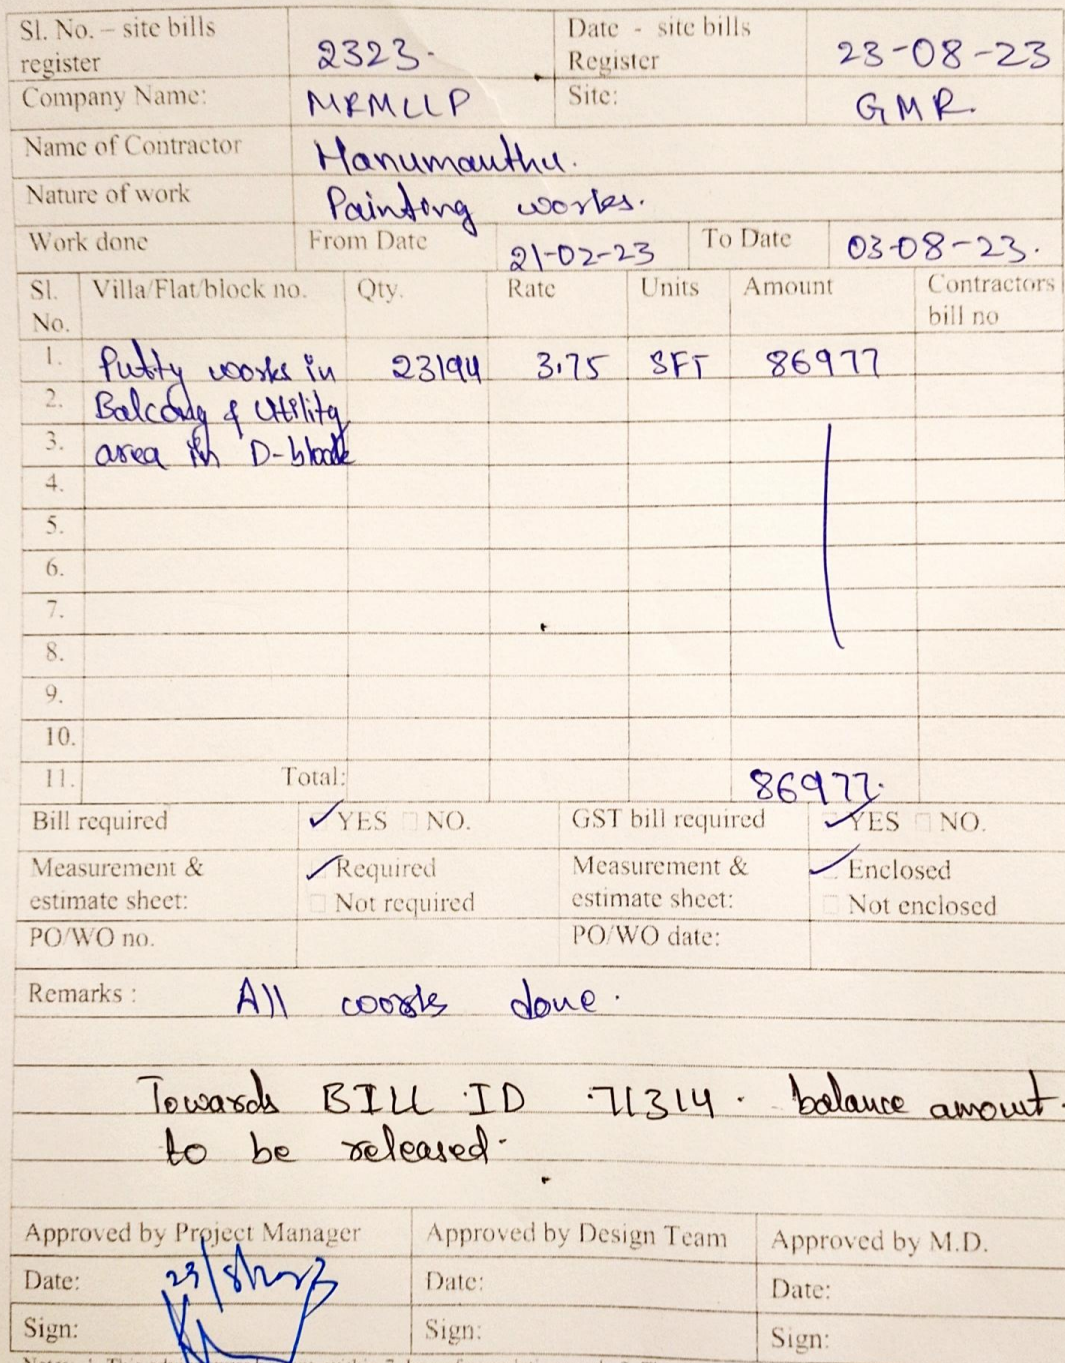 Sl. No. – site bills register 2323. Date - site bills Register 23-08-23
Company Name: MRMLLP Site: GMR.
Name of Contractor Hanumanthu.
Nature of work Painting works.
Work done From Date 21-02-23 To Date 03-08-23.
Sl. No. Villa/Flat/block no. Qty. Rate Units Amount Contractors bill no
1. Putty works in 23194 3.75 SFT 86977
2. Balcony & Utility
3. area in D-block
4.
5.
6.
7.
8.
9.
10.
11. Total: 86977.
Bill required YES NO. GST bill required YES NO.
Measurement & estimate sheet: Required Not required Measurement & estimate sheet: Enclosed Not enclosed
PO/WO no. PO/WO date:
Remarks : All works done.
Towards BILL ID 71314. balance amount.
to be released.
Approved by Project Manager Approved by Design Team Approved by M.D.
Date: Date: Date:
Sign: Sign: Sign: